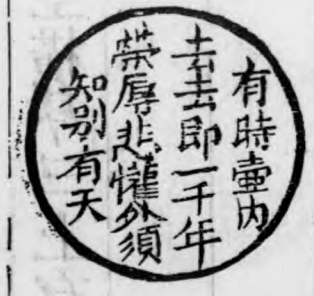 有時壷内
去去即一千年
荣辱悲懽外須
知别有天